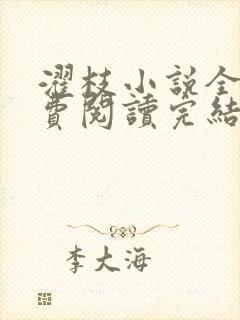 濯枝小說全
費閱讀完結
李大海